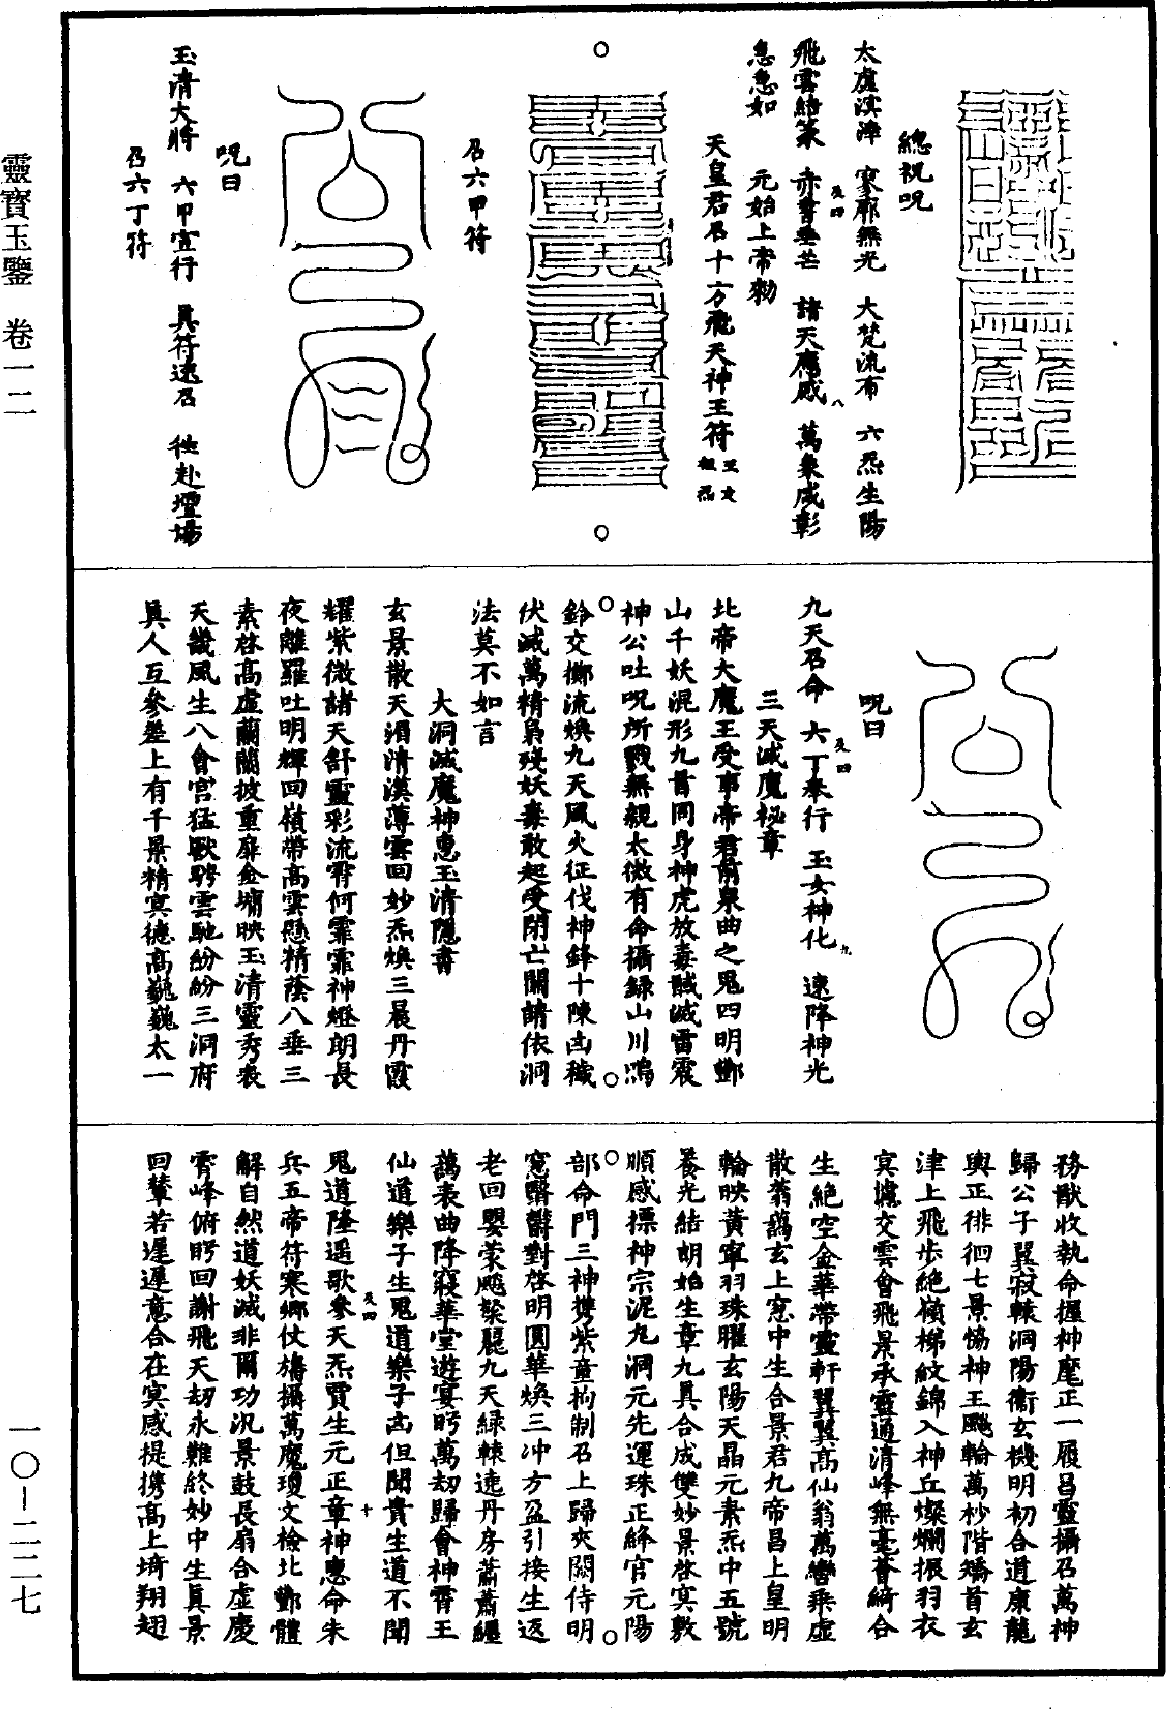 總祝呪
太虛溟涬　寥廓無光　大梵流布　六炁生陽
飛雲結篆　赤書垂芒　諸天應感　萬象咸彰
急急如　元始上帝勑
天皇君召十方飛天神王符
召六甲符
呪曰
玉清大將　六甲宣行　具符速召　徑赴壇場
召六丁符
呪曰
九天召命　六丁奉行　玉女神化　速降神光
三天滅魔祕章
北帝大魔王受事帝君前衆曲之鬼四明酆
山千妖混形九首同身神虎放毒馘滅雷震
神公吐呪所戮無親太微有命攝錄山川鴻
鈴交擲流煥九天風火征伐神鋒十陳凶穢
伏滅萬精梟殘妖毒敢起受閉亡開請依洞
法莫不如言
大洞滅魔神惠玉清隱書
玄景散天湄清漢薄雲回妙炁煥三晨丹霞
耀紫微諸天舒靈彩流霄何霏霏神燈朗長
夜離羅吐明輝回嶺帶高雲懸精蔭八垂三
素啓高虛蘭闕披重扉金墉映玉清靈秀表
天畿風生八會宮猛獸騁雲馳紛紛三洞府
眞人互參差上有千景精冥德高巍巍太一
務猷收執命握神麾正一履昌靈攝召萬神
歸公子翼寂轅洞陽衞玄機明初合道康龍
輿正徘徊七景協神王飈輪萬杪階矯首玄
津上飛步絶嶺梯紋錦入神丘燦爛振羽衣
冥攄交雲會飛景承靈通清峰無毫薈綺合
生絶空金華帶靈軒翼翼高仙翁萬轡乘虛
散蓊藹玄上窓中生合景君九帝昌上皇明
輪映黃寧羽珠曜玄陽天晶元素炁中五號
養光結朗始生章九眞合成雙妙景啓冥敷
順感摽神宗泥九洞元先運珠正絳宮元陽
部命門三神雙紫童拘制召上歸夾闕侍明
窓翳鬱對啓明圓華煥三冲方盈引接生返
老回嬰蒙飈粲麗九天綠棘遶丹房蕭蕭纏
藹表曲降寢華堂遊宴眄萬劫歸會神霄王
仙道樂子生鬼道樂子凶但聞貴生道不聞
鬼道隆遥歌參天炁賈生元正章神惠命朱
兵五帝符寒鄉仗旛攝萬魔瓊文檢北酆體
解自然道妖滅非爾功汎景鼓長扇合虛慶
霄峰俯眄回謝飛天劫永難終妙中生眞景
回輦若遲遲意合在冥感提携高上埼翔翅
靈寶玉鑒　卷一二
一〇—二二七